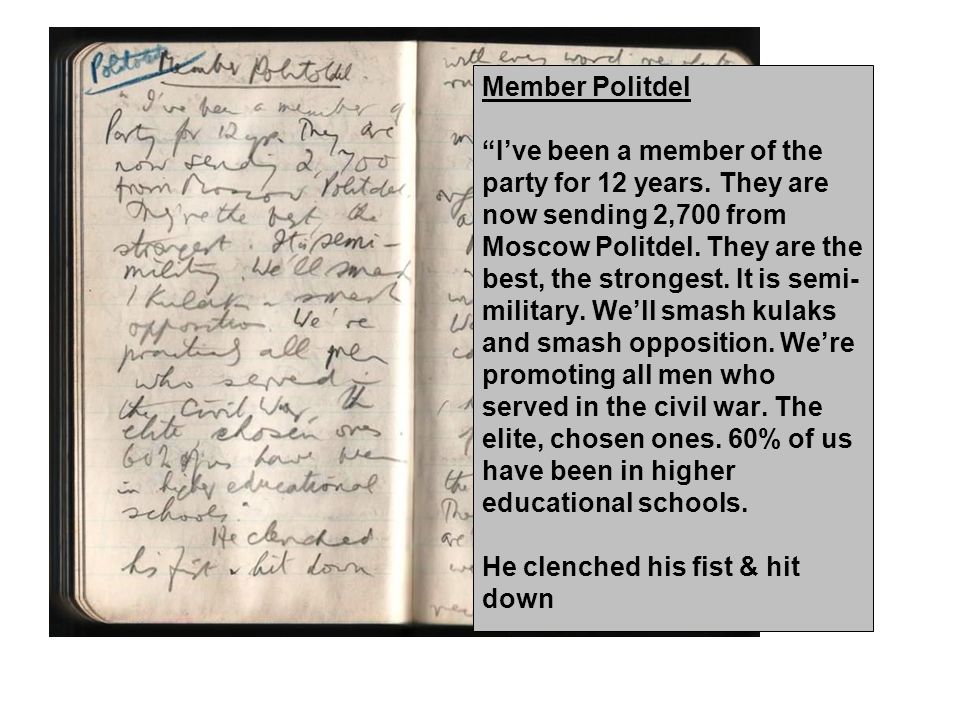 Politotdel
Member Politotdel.
"I've been a member of
Party for 12 yrs. They are
now sending 2,700
from Moscow Politdel.
They're the best, the
strongest. It is semi-
military. We'll smash
kulaks & smash
opposition. We're
promoting all men
who served in
the Civil War, the
elite, chosen ones.
60% of us have been
in higher educational
schools."
He clenched
his fist & hit down
with every word
Member Politdel
“I’ve been a member of the
party for 12 years. They are
now sending 2,700 from
Moscow Politdel. They are the
best, the strongest. It is semi-
military. We’ll smash kulaks
and smash opposition. We’re
promoting all men who
served in the civil war. The
elite, chosen ones. 60% of us
have been in higher
educational schools.
He clenched his fist & hit
down